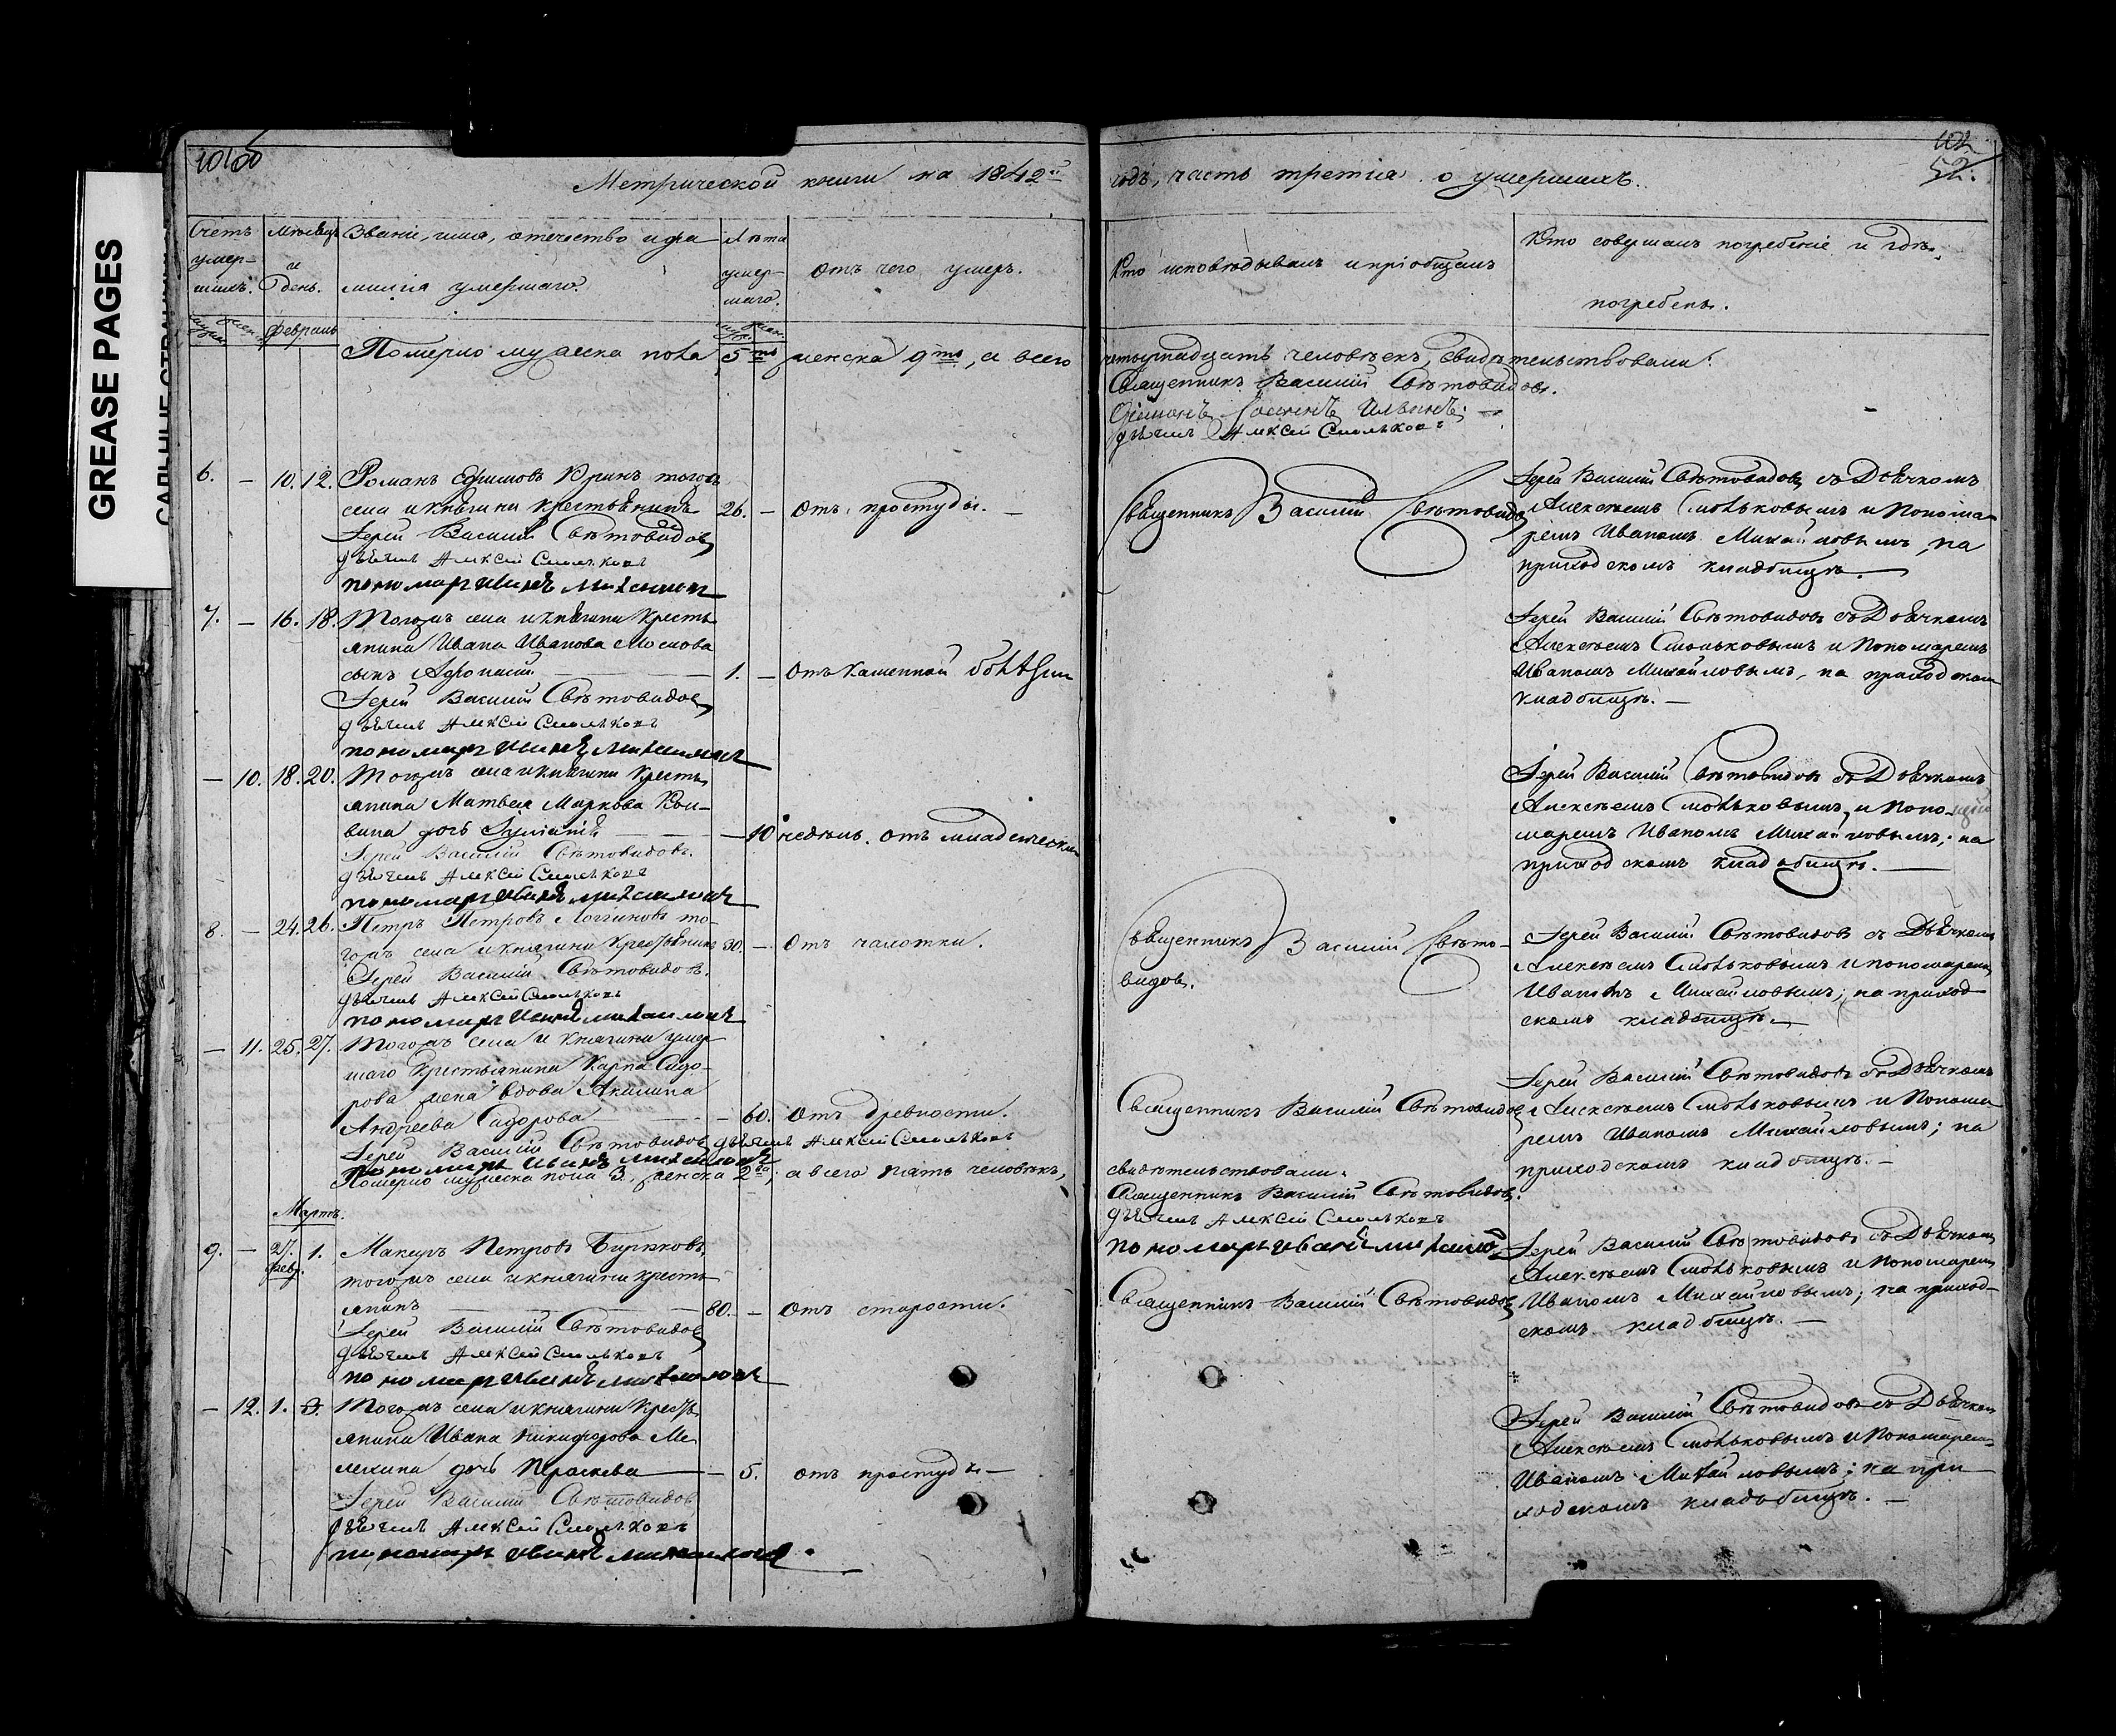 GREASE PAGES
Метрической книги на 1842й
годъ, часть третія о умершихъ.
102
52.
Счетъ умер-
шихъ.
Мѣсяцъ
и
день.
Званіе, имя, отечество и фа-
милія умершаго.
Лѣта
умер-
шаго.
Отъ чего умеръ.
Кто исповѣдывалъ и пріобщалъ
Кто совершалъ погребеніе и гдѣ
погребенъ.
Февраль
Померло мужеска пола 5ть женска 9ть, а всего
четырнадцать человѣкъ, свидѣтельствовали:
Священникъ Василій Свѣтовидовъ.
Діаконъ Ильинъ.
дьячекъ Алексѣй Смольковъ
6. — 10. 12. Романъ Ефимовъ тогожъ
села и княгини крестьянинъ 26. — Отъ простуды. —
Іерей Василій Свѣтовидовъ
дьячекъ Алексѣй Смольковъ
пономарь Иванъ Михаиловъ
Священникъ Василій Свѣтовидовъ
Іерей Василій Свѣтовидовъ съ Дьячкомъ
Алексѣемъ Смольковымъ и Понома-
ремъ Иваномъ Михайловымъ, на
приходскомъ кладбищѣ.
7. — 16. 18. Тогожъ села и княгини кресть-
янина Ивана Иванова Маслова
сынъ Афонасій — 1. — Отъ каменной болѣзни
Іерей Василій Свѣтовидовъ
дьячекъ Алексѣй Смольковъ
пономарь Иванъ Михаиловъ
Іерей Василій Свѣтовидовъ съ Дьячкомъ
Алексѣемъ Смольковымъ и Пономаремъ
Иваномъ Михайловымъ, на приходском
кладбищѣ. —
— 10. 18. 20. Тогожъ села и княгини кресть-
янина Матвея Маркова
дочь — 10 недѣль. отъ младенческой
Іерей Василій Свѣтовидовъ.
дьячекъ Алексѣй Смольковъ
пономарь Иванъ Михаиловъ
Іерей Василій Свѣтовидовъ съ Дьячкомъ
Алексѣемъ Смольковымъ и Поно-
маремъ Иваномъ Михайловымъ; на
приходскомъ кладбищѣ. —
8. — 24. 26. Петръ Петровъ Логгиновъ то-
гожъ села и княгини крестьянинъ 30. — Отъ чахотки.
Іерей Василій Свѣтовидовъ.
дьячекъ Алексѣй Смольковъ
пономарь Иванъ Михаиловъ
Священникъ Василій Свѣто-
видовъ.
Іерей Василій Свѣтовидовъ съ Дьячкомъ
Алексѣемъ Смольковымъ и пономаремъ
Иваномъ Михайловымъ; на приход-
скомъ кладбищѣ. —
— 11. 25. 27. Тогожъ села и княгини умер-
шаго крестьянина Карпа Сидо-
рова жена вдова Акилина
Андреева Сидорова — 60. Отъ древности.
Іерей Василій Свѣтовидовъ дьячекъ Алексѣй Смольковъ
пономарь Иванъ Михаиловъ
Священникъ Василій Свѣтовидовъ
Іерей Василій Свѣтовидовъ съ Дьячкомъ
Алексѣемъ Смольковымъ и Понома-
ремъ Иваномъ Михайловымъ; на
приходскомъ кладбищѣ. —
Померло мужеска пола 3. женска 2ва, а всего пять человѣкъ,
свидѣтельствовали:
Священникъ Василій Свѣтовидовъ.
дьячекъ Алексѣй Смольковъ
пономарь Иванъ Михаиловъ
Мартъ.
9. — 27. февр. 1. Макаръ Петровъ Бирюковъ,
тогожъ села и княгини кресть-
янинъ — 80. — Отъ старости.
Іерей Василій Свѣтовидовъ
дьячекъ Алексѣй Смольковъ
пономарь Иванъ Михаиловъ
Священникъ Василій Свѣтовидовъ
Іерей Василій Свѣтовидовъ съ Дьячкомъ
Алексѣемъ Смольковымъ и Пономаремъ
Иваномъ Михайловымъ; на приход-
скомъ кладбищѣ. —
— 12. 1. 3. Тогожъ села и княгини кресть-
янина Ивана Никифорова Ме-
лехина дочь Параскева — 5. отъ простуды —
Іерей Василій Свѣтовидовъ
дьячекъ Алексѣй Смольковъ
пономарь Иванъ Михаиловъ
Іерей Василій Свѣтовидовъ съ Дьячкомъ
Алексѣемъ Смольковымъ и Пономаремъ
Иваномъ Михайловымъ; на при-
ходскомъ кладбищѣ. —